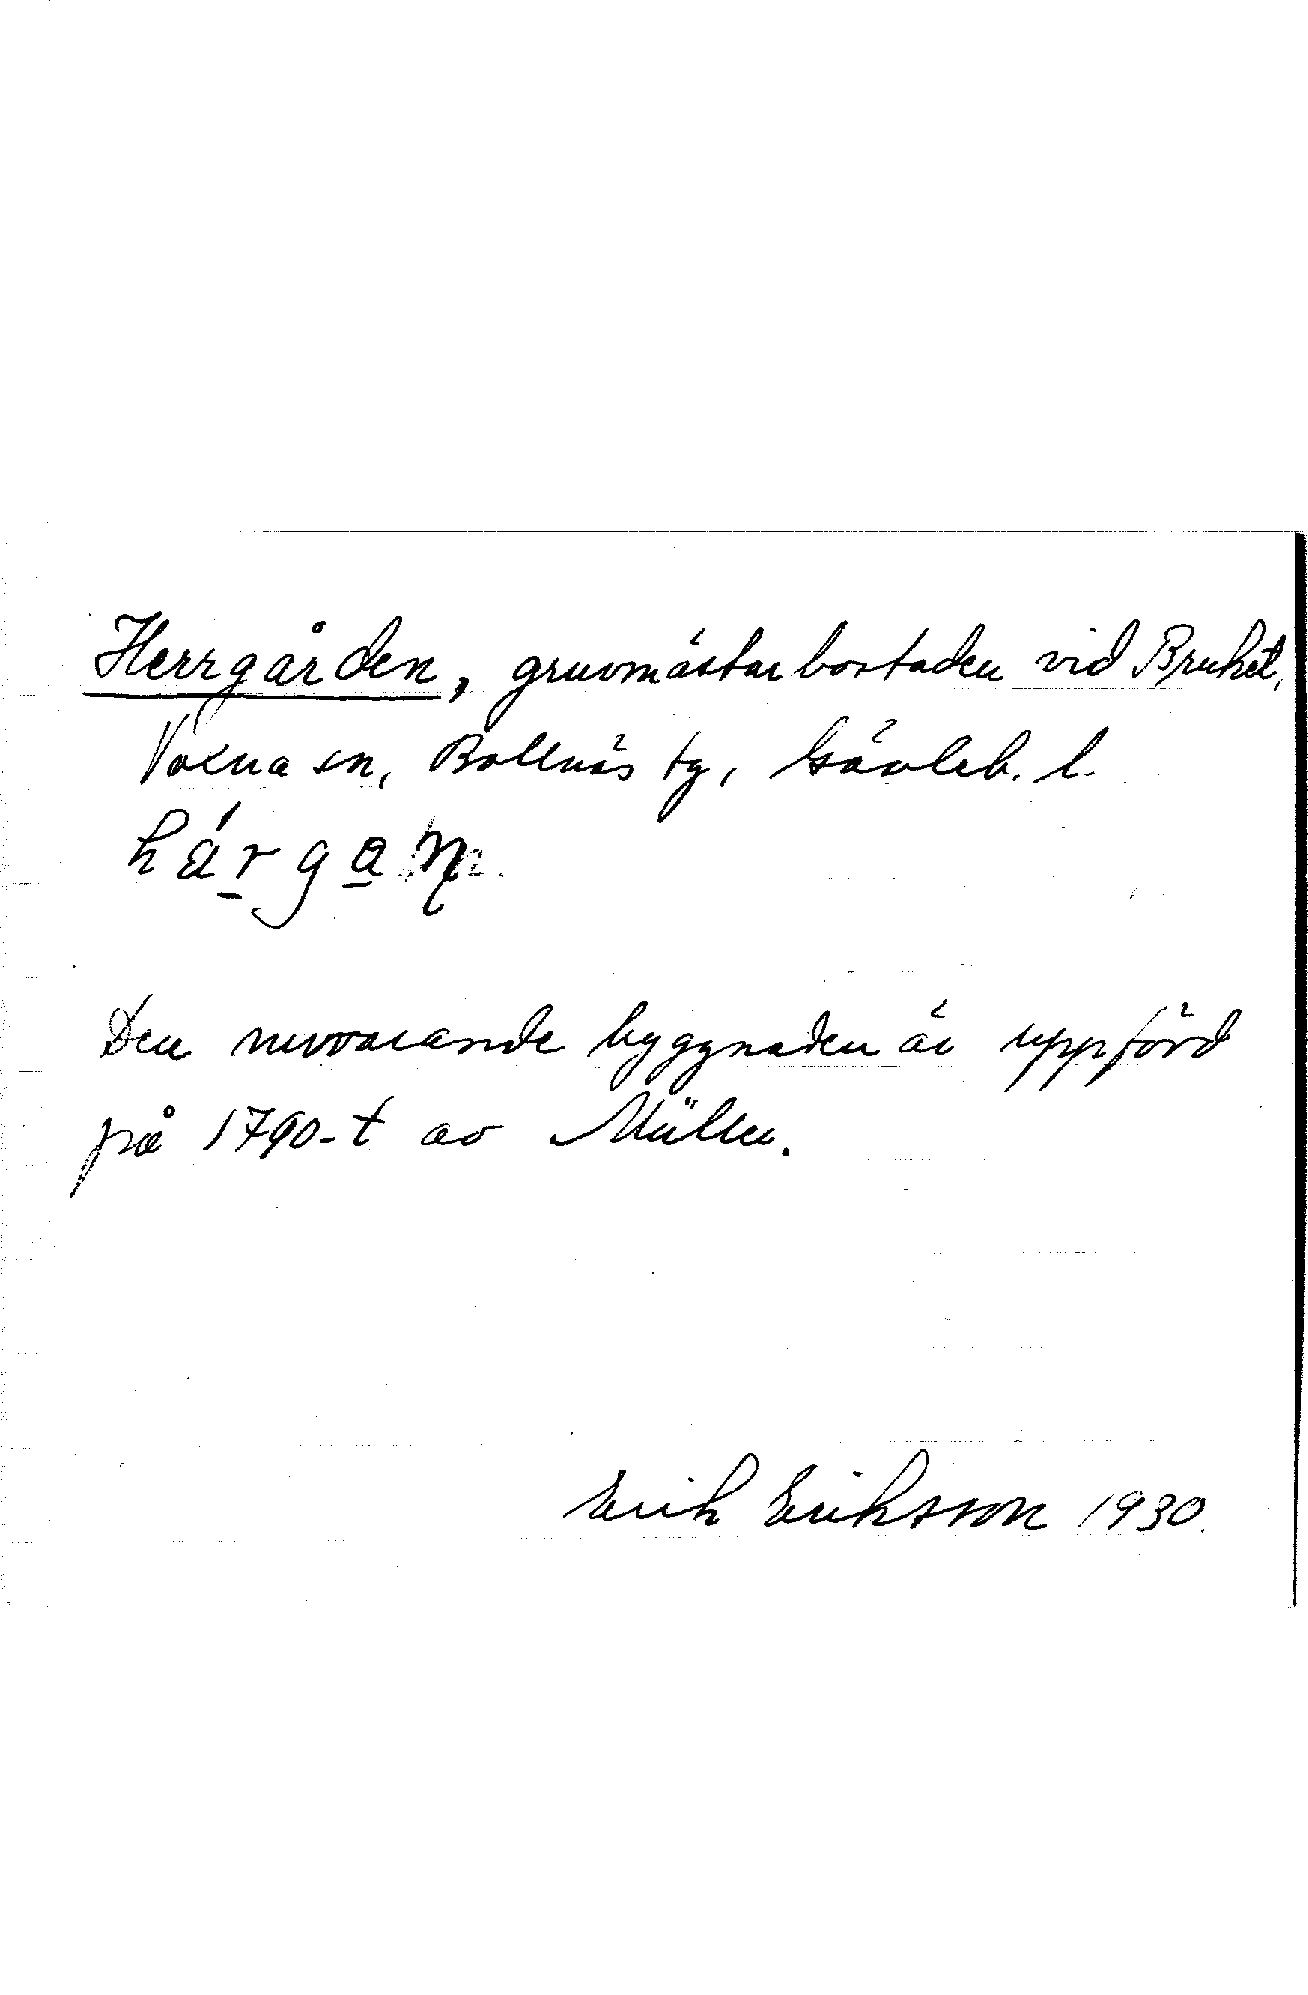 Herrgården, gruvmästarbostaden vid Bruket,
Voxna sn, Bollnäs tg, Gävleb. l.
Den nuvarande byggnaden är uppförd
på 1790-t av Müller.
Erik Eriksson 1930.